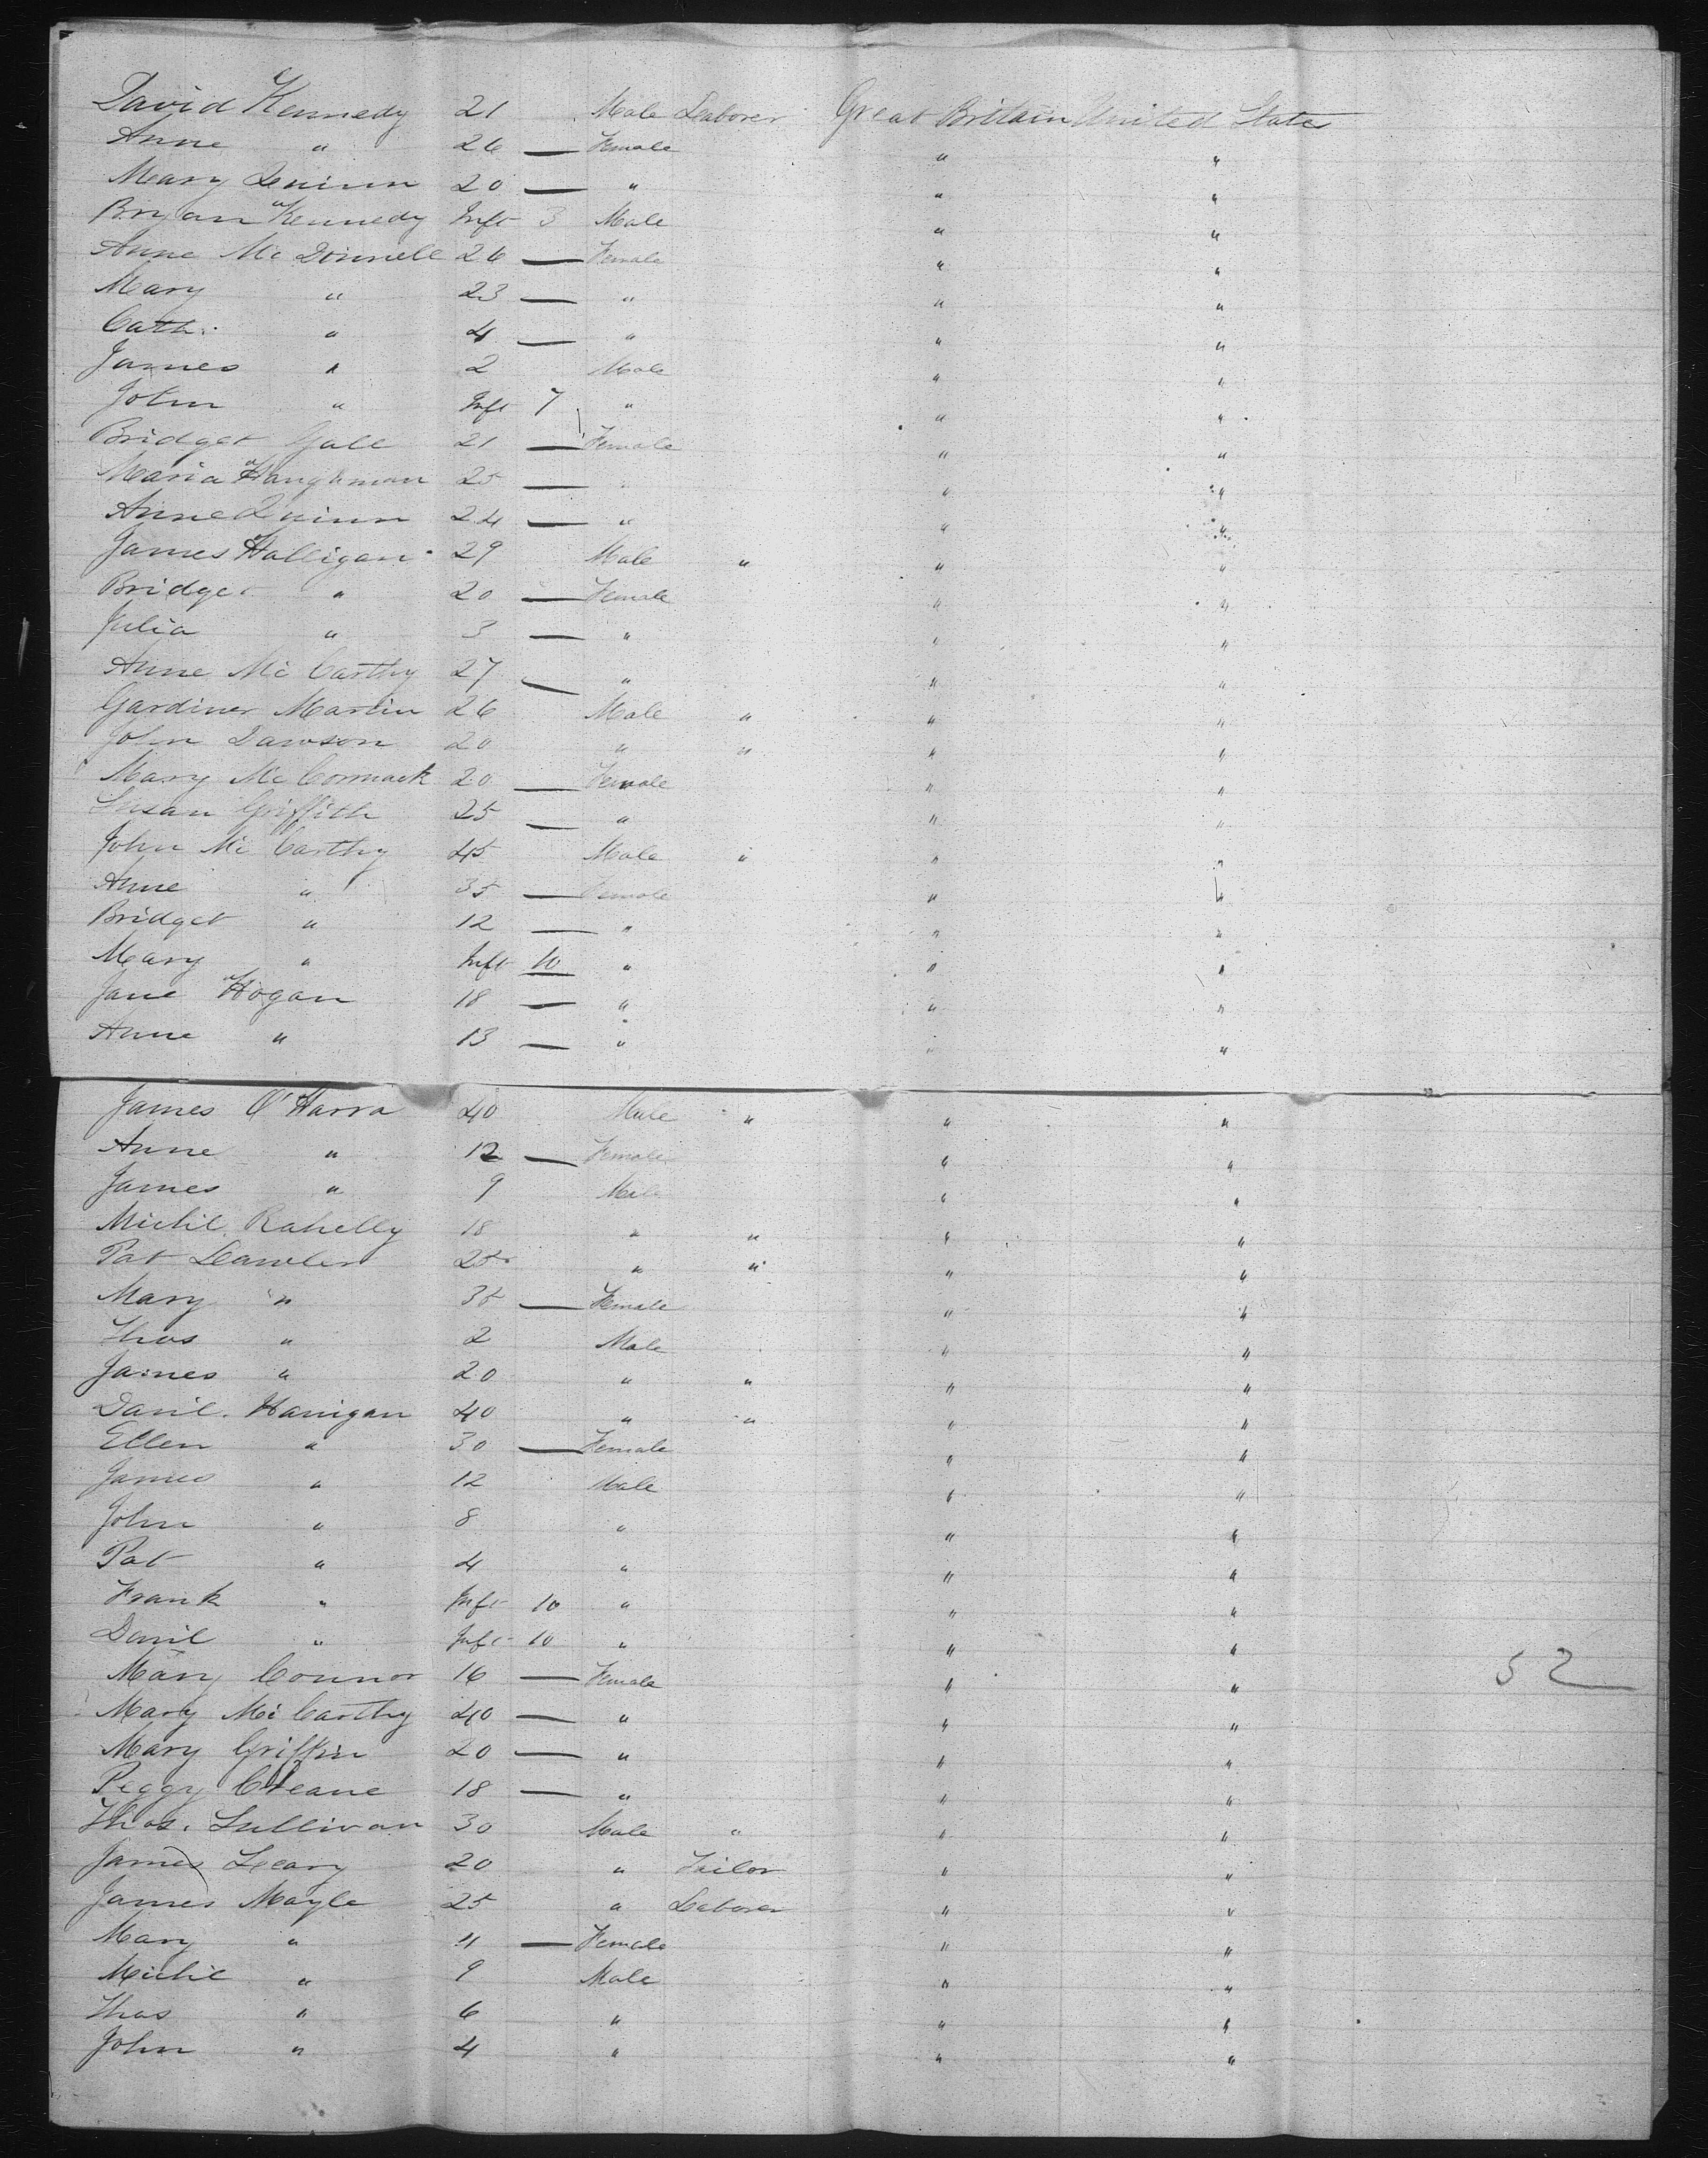 David Kennedy 21 Male Laborer Great Britain United States
Anne " 26 — Female " "
Mary Quinn 20 — " " "
Bryan Kennedy Inft 3 Male " "
Anne McDonnell 26 — Female " "
Mary " 23 — " " "
Cath. " 4 — " " "
James " 2 Male " "
John " Inft 7 " " "
Bridget Gall 21 — Female " "
Maria 25 — " " "
Anne Quinn 24 — " " "
James Halligan 29 Male " " "
Bridget " 20 — Female " "
Julia " 3 — " " "
Anne McCarthy 27 — " " "
Gardiner Martin 26 Male " " "
John Dawson 20 " " " "
Mary McCormack 20 — Female " "
Susan Griffith 25 — " " "
John McCarthy 45 Male " " "
Anne " 35 — Female " "
Bridget " 12 — " " "
Mary " Inft 10 " " "
Jane Hogan 18 — " " "
Anne " 13 — " " "
James O'Harra 40 Male " " "
Anne " 12 — Female " "
James " 9 Male " "
Michl Rahelly 18 " " " "
Pat Lawler 25 " " " "
Mary " 35 — Female " "
Thos " 2 Male " "
James " 20 " " " "
Danl. Hanigan 40 " " " "
Ellen " 30 — Female " "
James " 12 Male " "
John " 8 " " "
Pat " 4 " " "
Frank " Inft 10 " " "
Danl " Inft 10 " " "
Mary Connor 16 — Female " " 52
Mary McCarthy 40 — " " "
Mary Griffin 20 — " " "
Peggy 18 — " " "
Thos. Sullivan 30 Male " " "
James Leary 20 " Tailor " "
James Moyle 25 " Laborer " "
Mary " 11 — Female " "
Michl " 9 Male " "
Thos " 6 " " "
John " 4 " " "